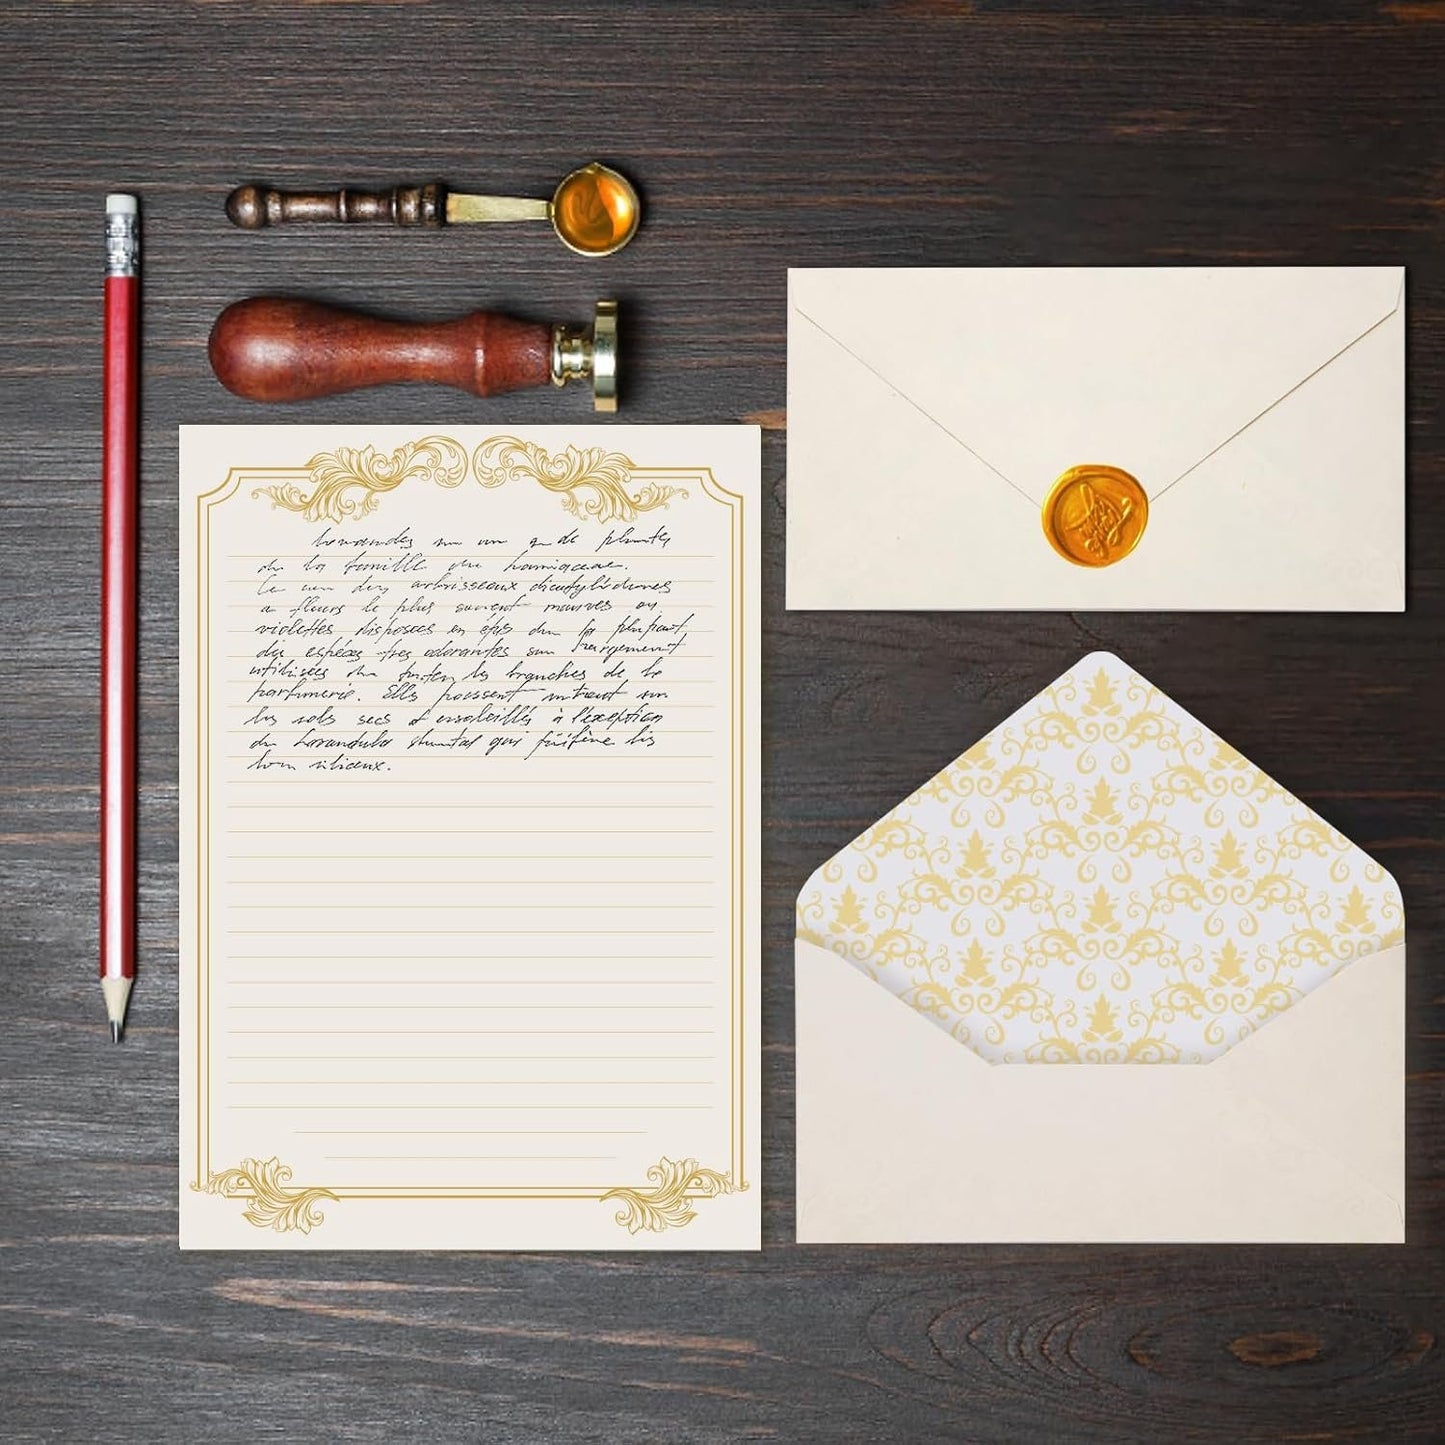 de plantes
de la famille des Lamiaceae.
Ce sont des arbrisseaux dicotylédones
a fleurs le plus souvent mauves ou
violettes disposées en épis dont la plupart
des espèces très odorantes sont largement
utilisées dans toutes les branches de la
parfumerie. Elles poussent surtout sur
les sols secs et ensoleillés à l'exception
du Lavandula qui préfère les
siliceux.